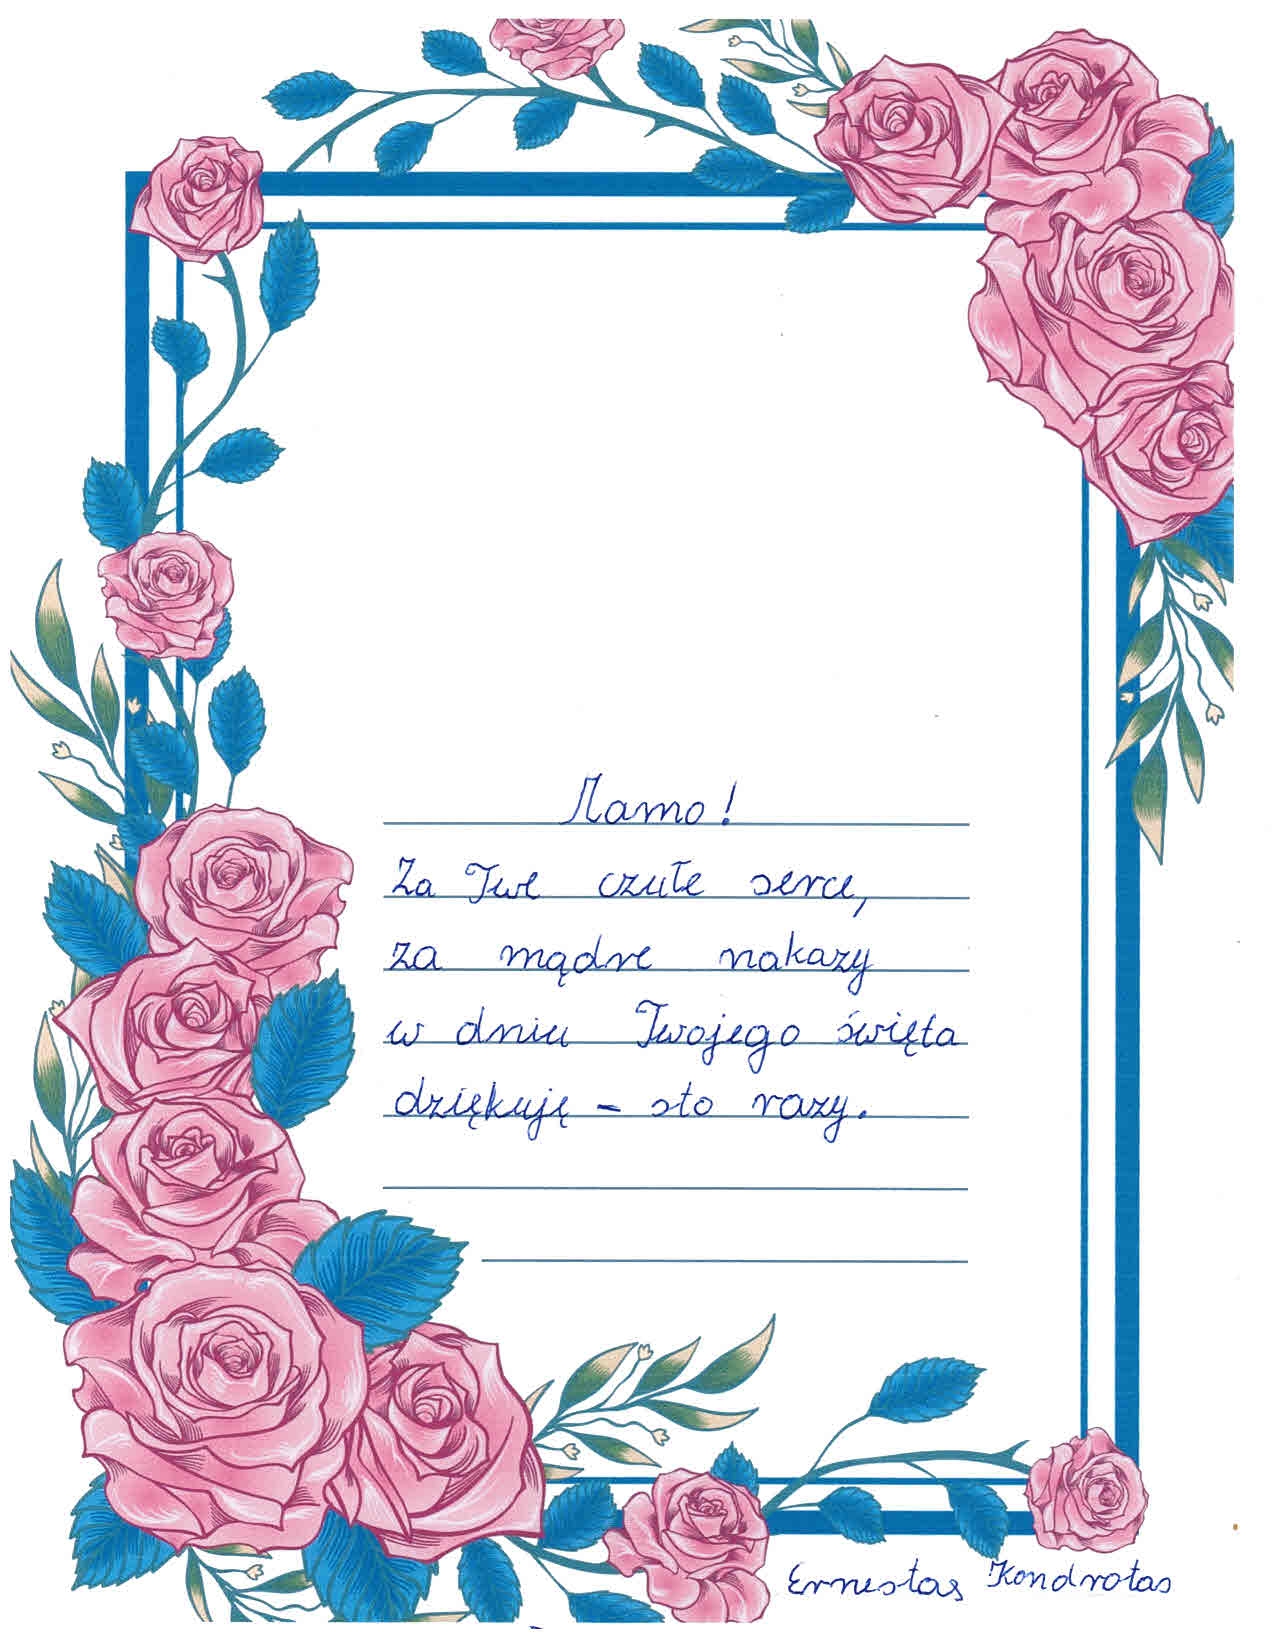 Mamo!
Za Twe czułe serce,
za mądre nakazy
w dniu Twojego święta
dziękuję – sto razy.
Ernestas Kondrotas